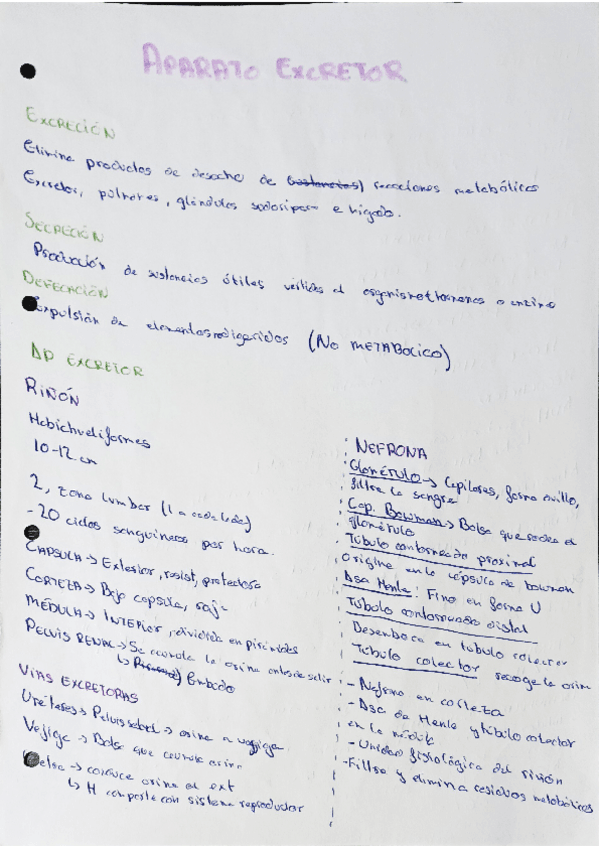 APARATO EXCRETOR
EXCRECIÓN
Elimina productos de desecho de (sustancias) reacciones metabólicas
Excretor, pulmones, glándulas sudoríparas e hígado.
SECRECIÓN
Producción de sustancias útiles vertidas al organismo hormonas o enzima
DEFECACIÓN
Expulsión de elementos no digeridos (NO METABOLICO)
AP EXCRETOR
RIÑÓN
Habichueliformes
10-12 cm
2, zona lumbar (1 a cada lado)
-20 ciclos sanguineos por hora.
CAPSULA → Exterior, resist, protectora
CORTEZA → Bajo capsula, roja
MÉDULA → INTERIOR, dividida en piramides
PELVIS RENAL → Se acumula la orina antes de salir
↳ Embudo
VIAS EXCRETORAS
Uréteres → Pelvis renal → orina a vejiga
Vejiga → Bolsa que acumula orina
→ conduce orina al ext
↳ H comparte con sistema reproductor
NEFRONA
Glomérulo → Capilares, forma ovillo,
filtra la sangre
Cap. Bowman → Bolsa que rodea el
glomérulo
Tubulo contorneado proximal
Origina en la cápsula de bowman
Asa Henle: Fino en forma U
Tubulo contorneado distal
Desemboca en tubulo colector
Tubulo colector recoge la orina
- Nefrona en corteza
- Asa de Henle y tubulo colector
en la médula
- Unidad fisiológica del riñón
- Filtra y elimina residuos metabólicos